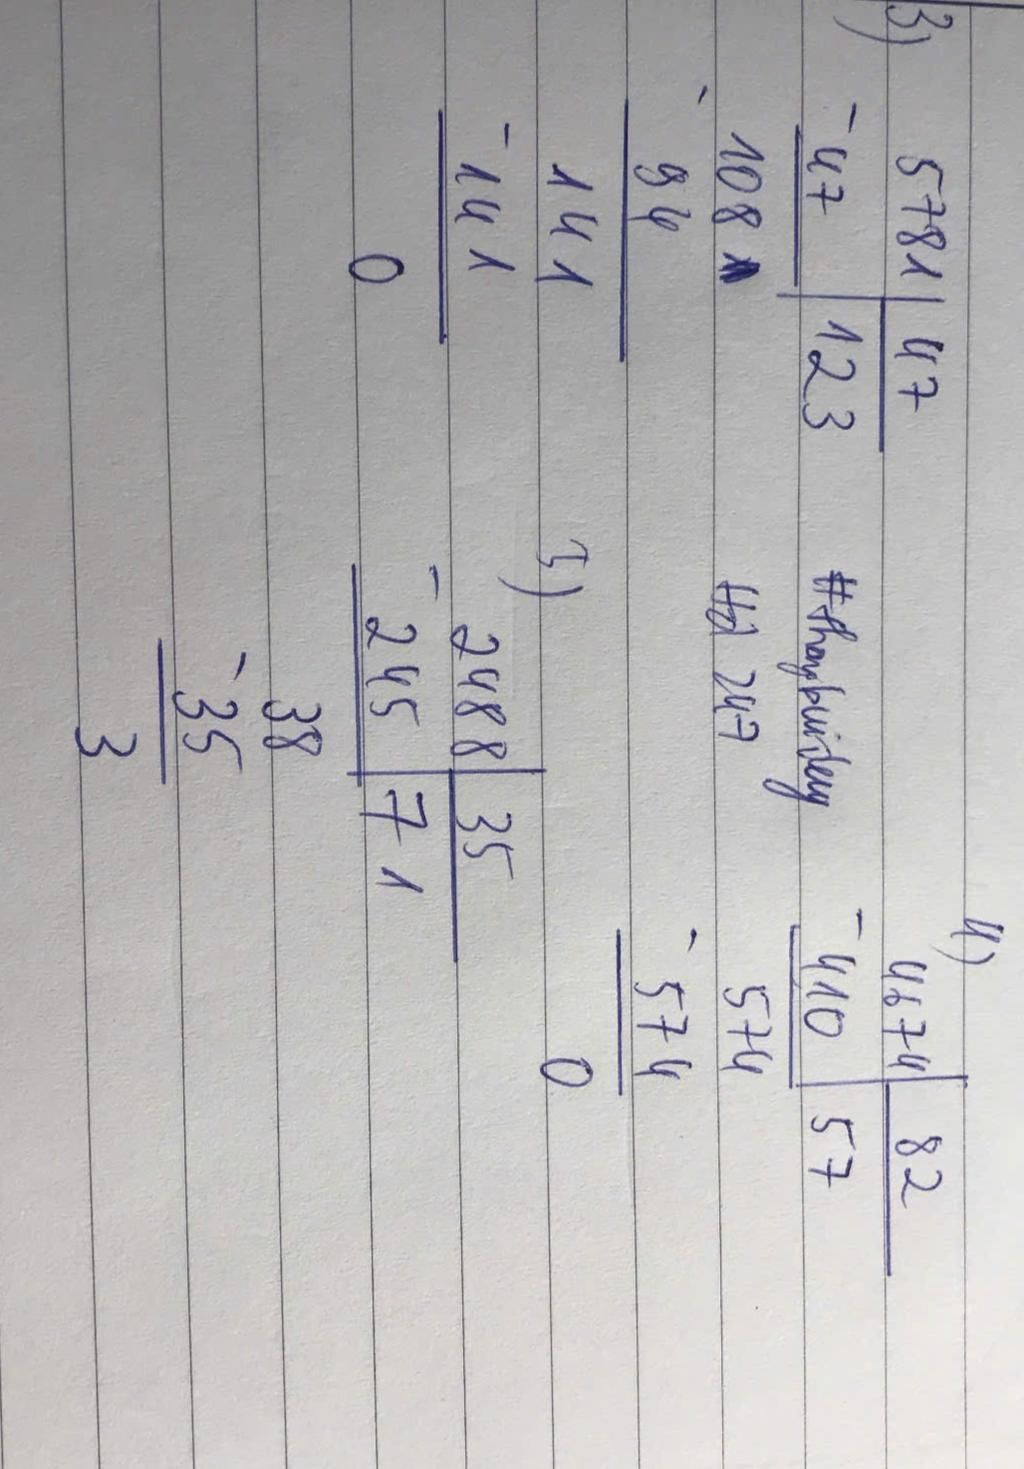 3)
5781 47
- 47 123
108
- 94
141
- 141
0
247
4)
4674 82
- 410 57
574
- 574
0
1)
2488 35
- 245 71
38
- 35
3